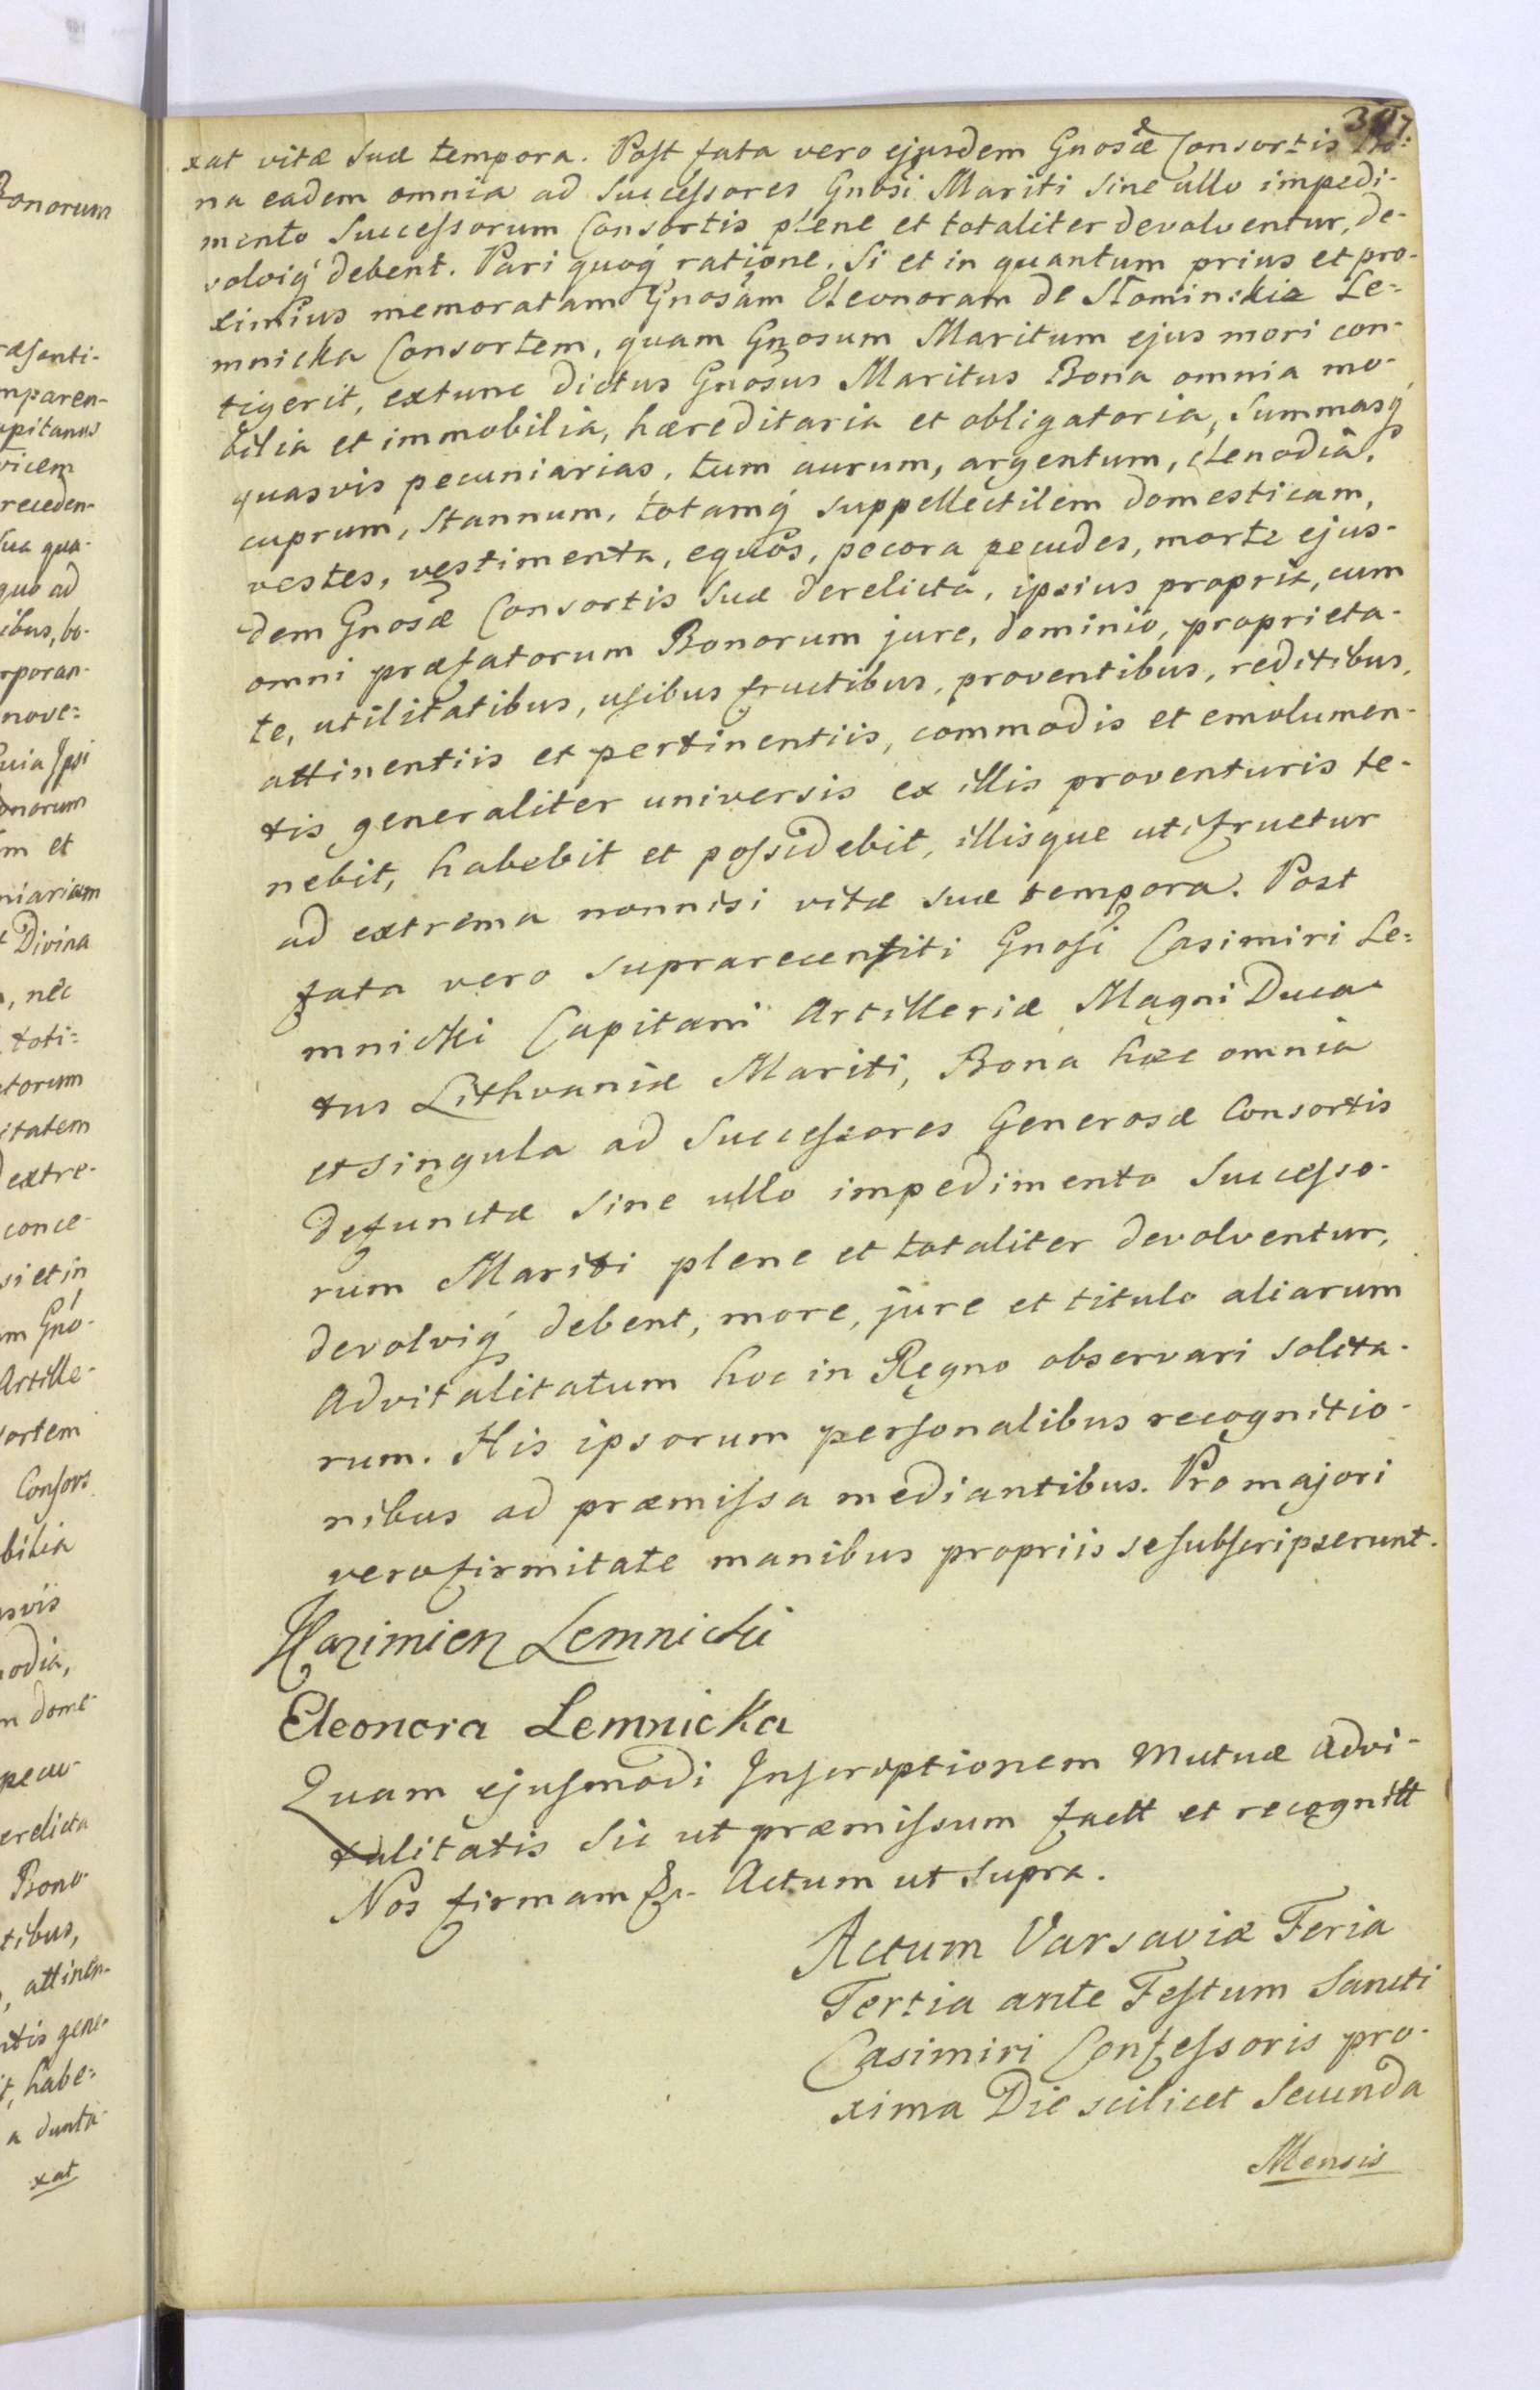 Bonorum
ræsenti-
mparen-
apitanus
vicem
receden-
Sua qua-
quo ad
ibus, bo-
rporan-
nove=
Ipsi
onorum
m et
niariam
t Divina
, nec
toti=
torum
itatem
extre-
conce-
si et in
m Gno-
Artille-
ortem
Consors
bilia
svis
odia,
n dome-
pecu-
erelicta
Bono-
tibus,
, attinen-
ntis gene-
t, habe=
a dunta-
xat
xat vitæ suæ tempora. Post fata vero ejusdem Gnosæ Consortis Bo-
na eadem omnia ad Successores Gnosi Mariti sine ullo impedi-
mento Successorum Consortis plene et totaliter devolventur, de-
volviq́ debent. Pari quoq́ ratione. Si et in quantum prius et pro-
ximius memoratam Gnosam Eleonoram de Słominskie Le=
mnicka Consortem, quam Gnosum Maritum ejus mori con-
tigerit, extunc dictus Gnosus Maritus Bona omnia mo-
bilia et immobilia, hæreditaria et obligatoria, Summasq́
quasvis pecuniarias, tum aurum, argentum, clenodia,
cuprum, stannum, totamq́ suppellectilem domesticam,
vestes, vestimenta, equos, pecora pecudes, morte ejus-
dem Gnosæ Consortis suæ derelicta, ipsius propria, cum
omni præfatorum Bonorum jure, dominio, proprieta-
te, utilitatibus, usibus fructibus, proventibus, reditibus,
attinentiis et pertinentiis, commodis et emolumen-
tis generaliter universis ex illis proventuris te-
nebit, habebit et possidebit, illisque utifruetur
ad extrema nonnisi vitæ suæ tempora. Post
fata vero suprarecensiti Gnosi Casimiri Le=
mnicki Capitani Artilleriæ Magni Duca-
tus Lithvaniæ Mariti, Bona hæc omnia
et singula ad Successores Generosæ Consortis
defunctæ sine ullo impedimento Successo-
rum Mariti plene et totaliter devolventur,
devolviq́ debent, more, jure et titulo aliarum
Advitalitatum hoc in Regno observari solita-
rum. His ipsorum personalibus recognitio-
nibus ad præmissa mediantibus. Pro majori
vero firmitate manibus propriis se subscripserunt.
Kazimierz Lemnicki
Eleonora Lemnicka
Quam ejusmodi Inscriptionem Mutuæ Advi-
talitatis sic ut præmissum factt et recognitt
Nos firmam &c. Actum ut supra.
Actum Varsaviæ Feria
Tertia ante Festum Sancti
Casimiri Confessoris pro-
xima Die scilicet Secunda
Mensis